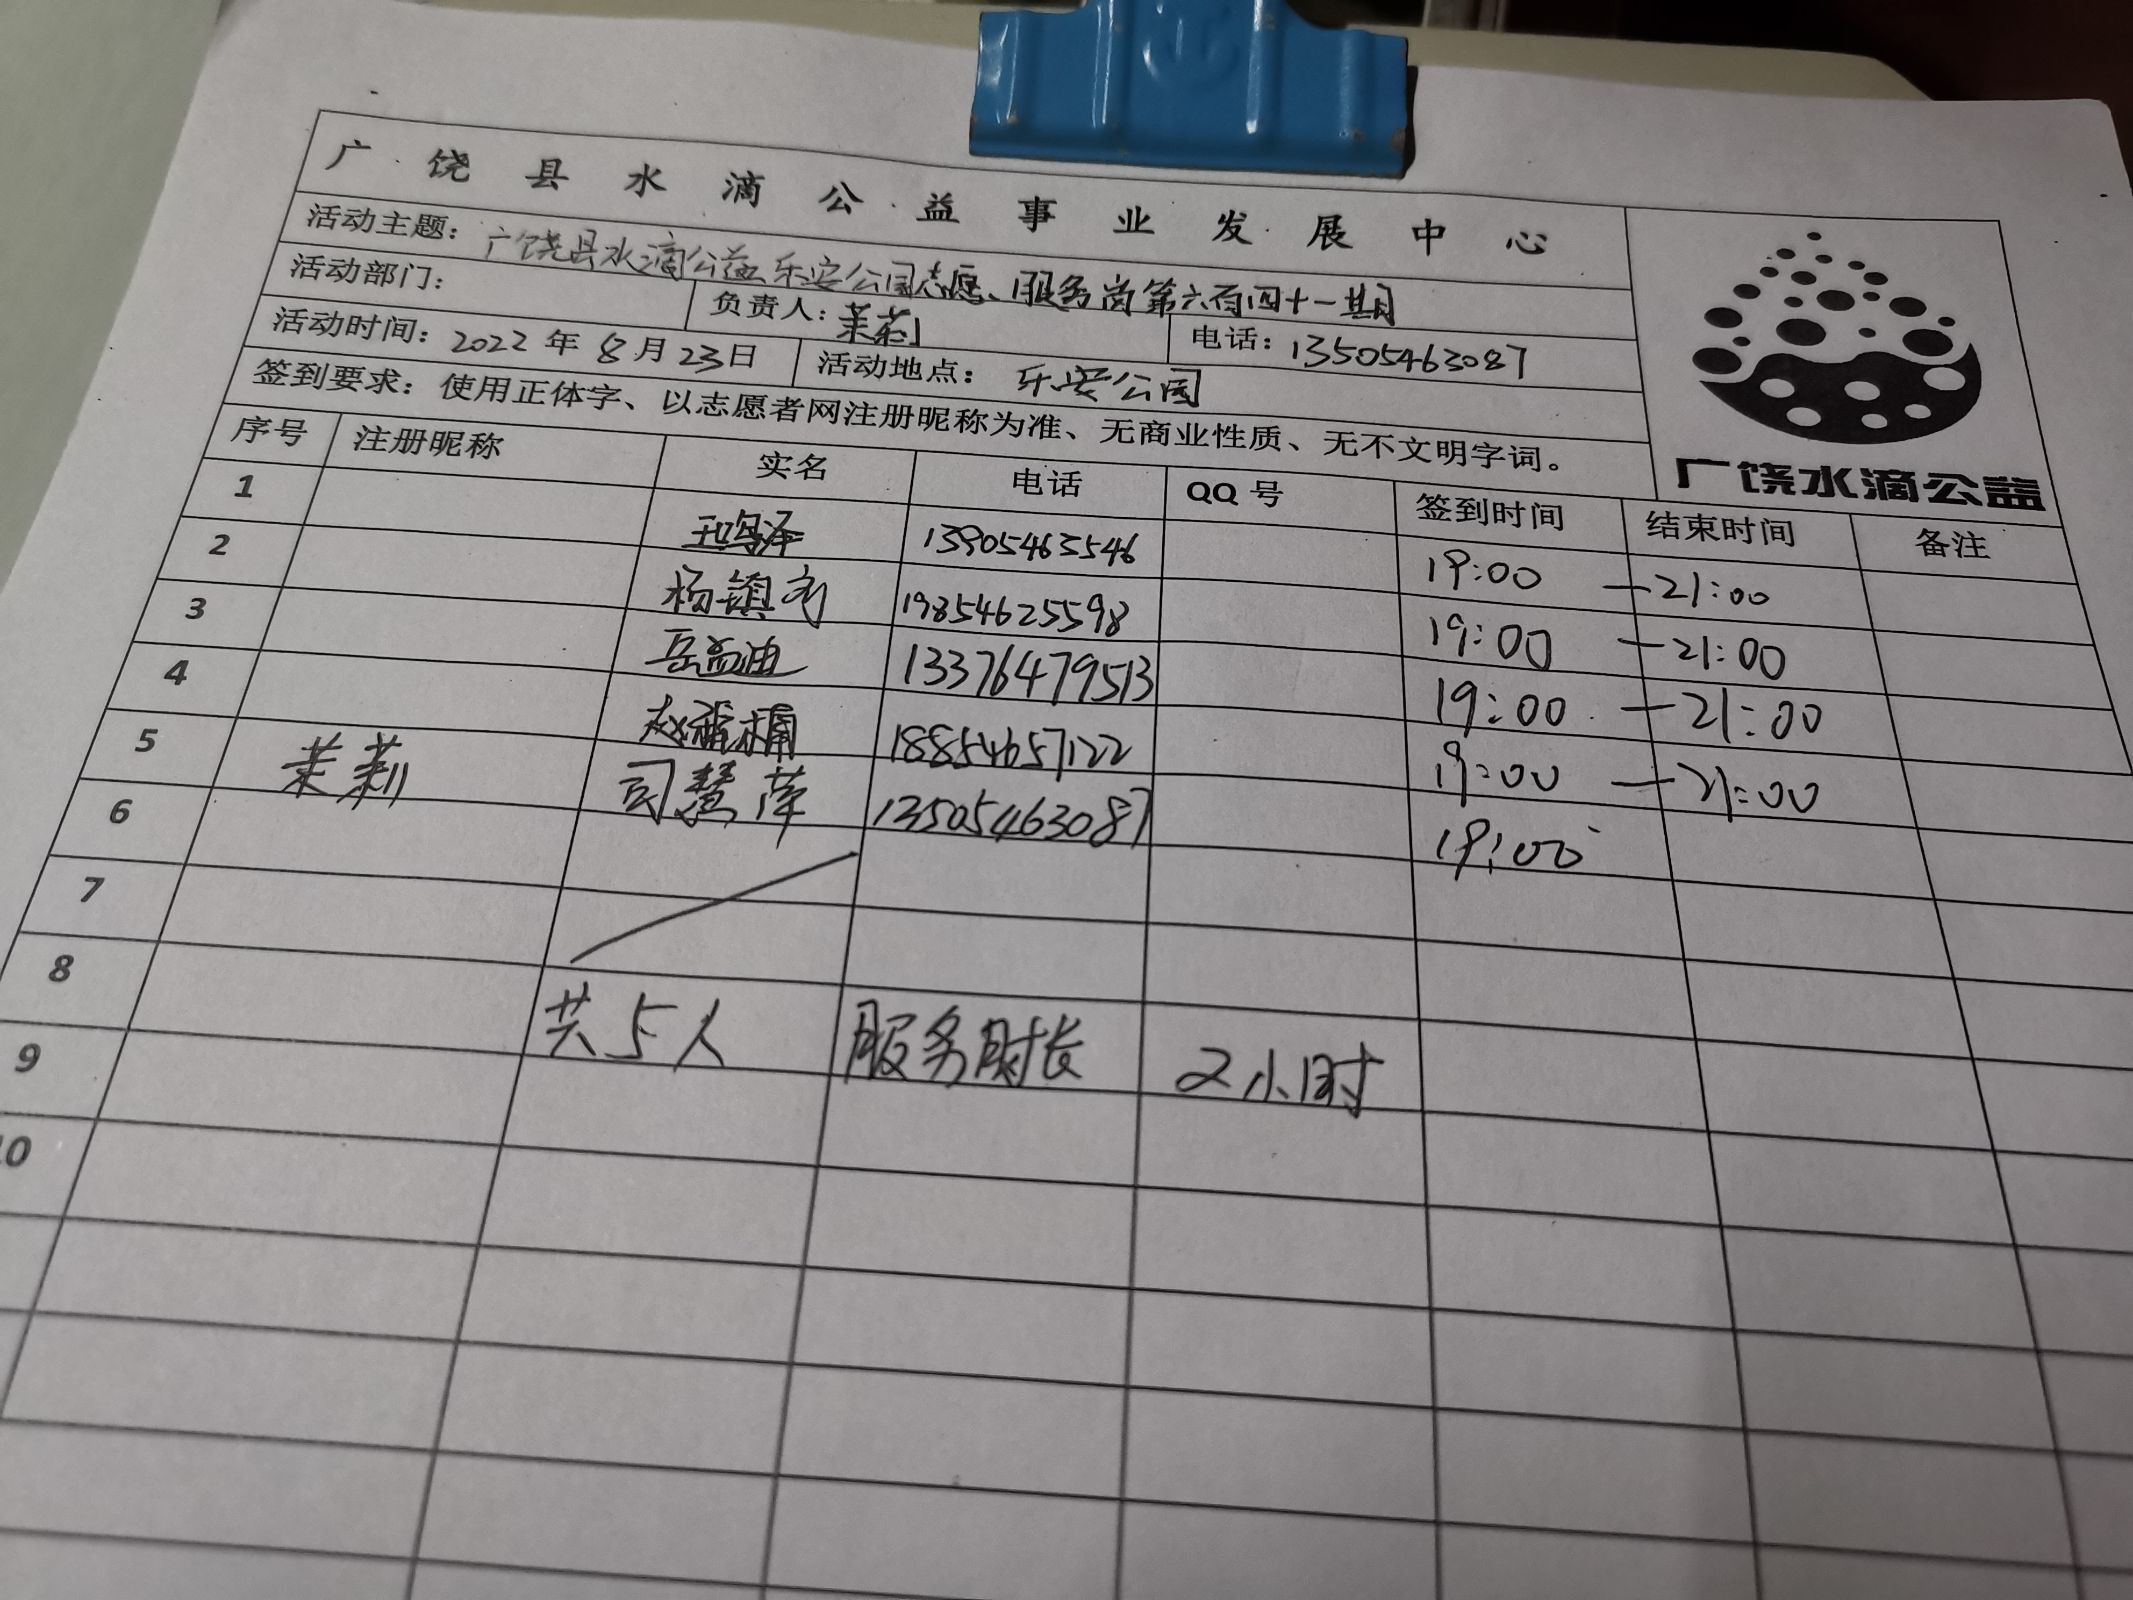 广饶县水滴公益事业发展中心
活动主题：广饶县水滴公益乐安公园志愿服务岗第六百四十一期
活动部门： 负责人：茉莉 电话：13505463087
活动时间：2022年8月23日 活动地点：乐安公园
签到要求：使用正体字、以志愿者网注册昵称为准、无商业性质、无不文明字词。
广饶水滴公益
序号 注册昵称 实名 电话 QQ号 签到时间 结束时间 备注
1 13905463546 19:00 —21:00
2 19854625598 19:00 —21:00
3 岳孟迪 13376479513 19:00 —21:00
4 18854657122 19:00 —21:00
5 茉莉 司慧萍 13505463087 19:00
6
7
8 共5人 服务时长 2小时
9
10